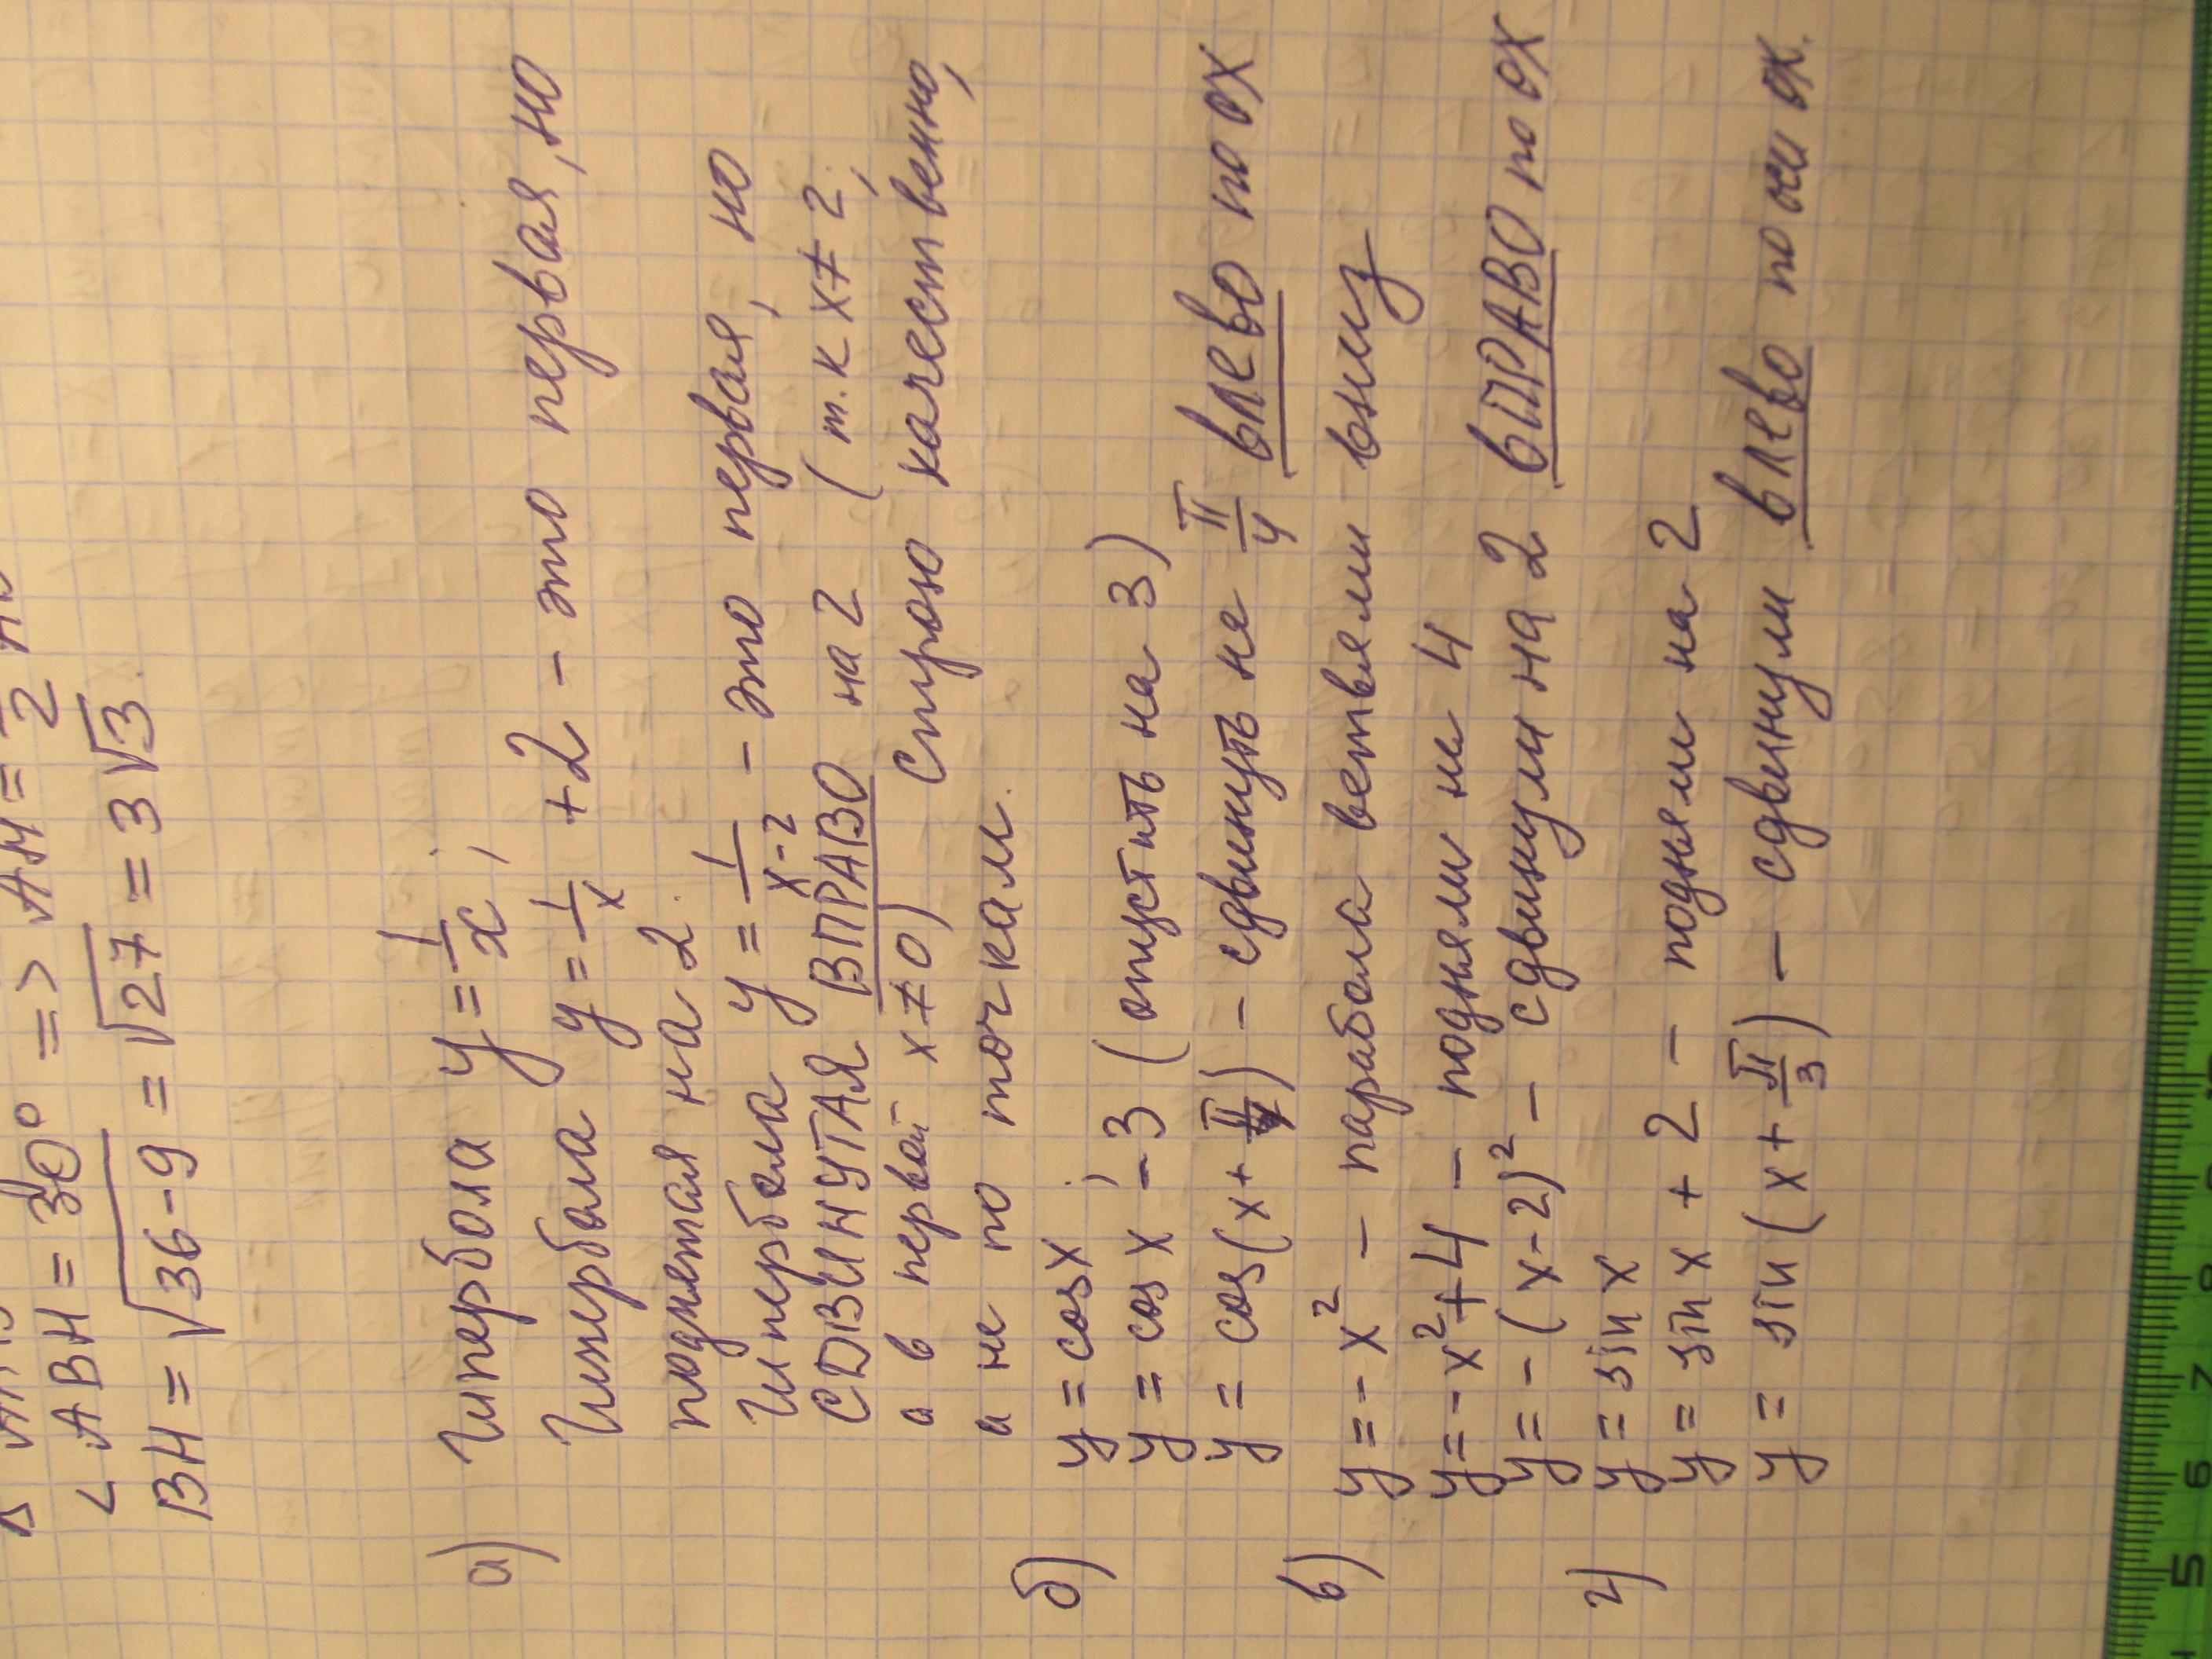 ∠ ABH = 30° => AH = 1/2 AB
BH = √36-9 = √27 = 3√3.
а) Гипербола y = 1/x;
Гипербола y = 1/x + 2 - это первая, но
поднятая на 2.
Гипербола y = 1/x-2 - это первая, но
СДВИНУТАЯ ВПРАВО на 2 (т.к x ≠ 2,
а в первой x ≠ 0) Строю качественно,
а не по точкам.
б) y = cos x;
y = cos x - 3 (опустить на 3)
y = cos(x + π/4) - сдвинуть на π/4 влево по ох
в) y = -x² - парабола ветвями вниз
y = -x² + 4 - подняли на 4
y = -(x-2)² - сдвинули на 2 вПРАВО по ох
г) y = sin x
y = sin x + 2 - подняли на 2
y = sin(x + π/3) - сдвинули влево по оси ох.
5 6 7 8